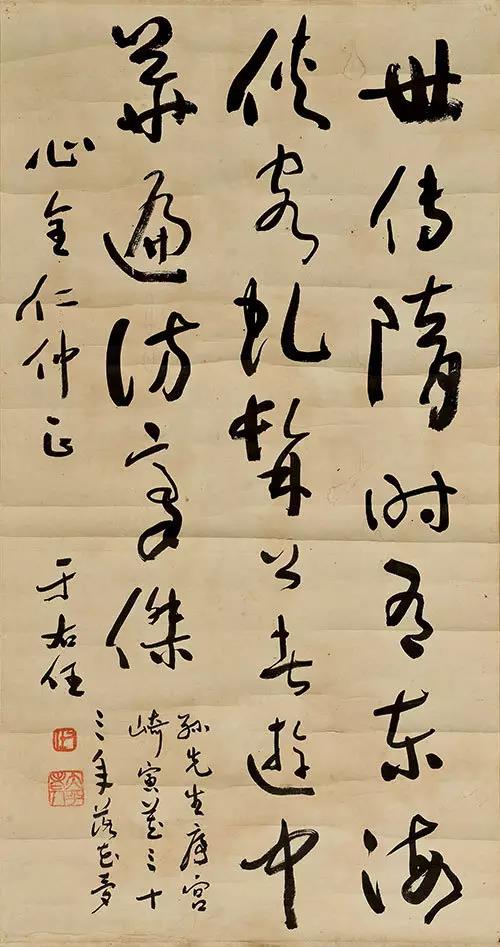 世傳隋時有東海
俠客虬髯公者遊中
華遍訪豪傑
孫先生序宮
崎寅藏三十
三年落花夢
心仁仲正
于右任